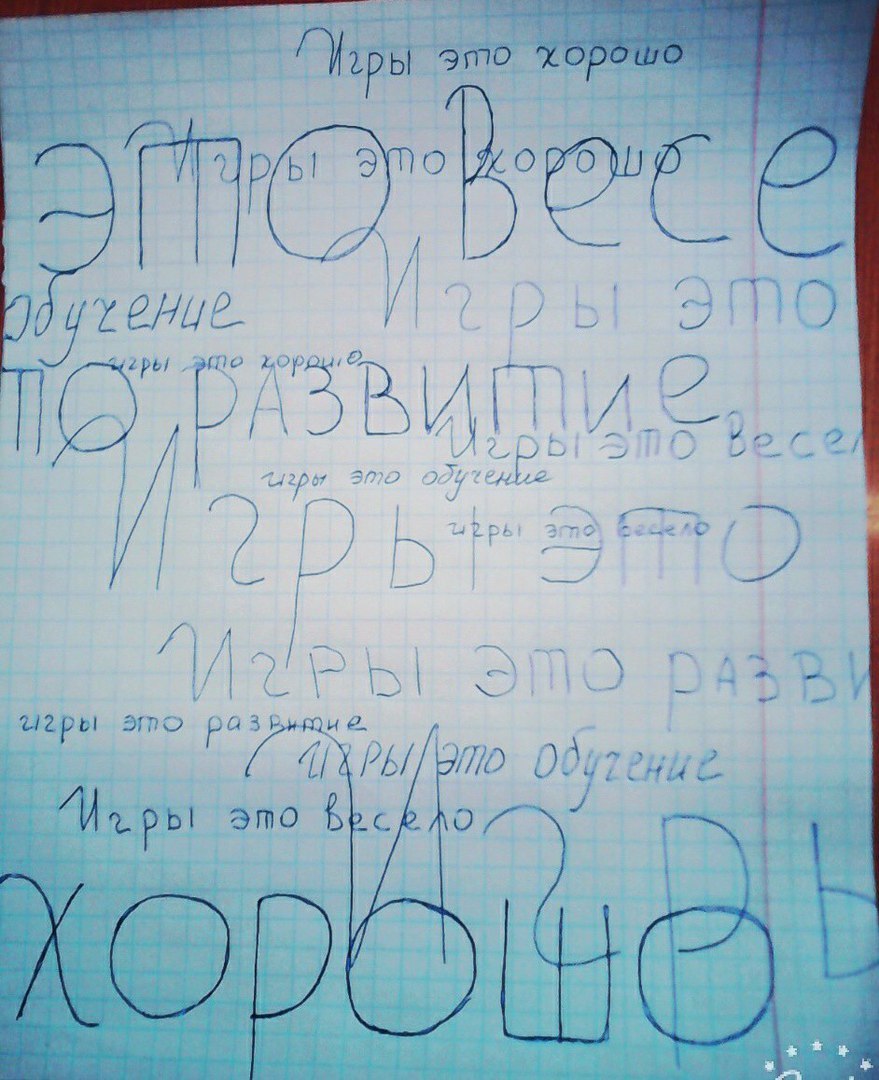 Игры это хорошо
это Весе
Игры это хорошо
обучение
Игры это
игры это хорошо
то развитие
Игры это Весел
игры это обучение
Игры это
игры это весело
Игры это разви
игры это развитие
Игры это обучение
Игры это весело
Игры
хорошо